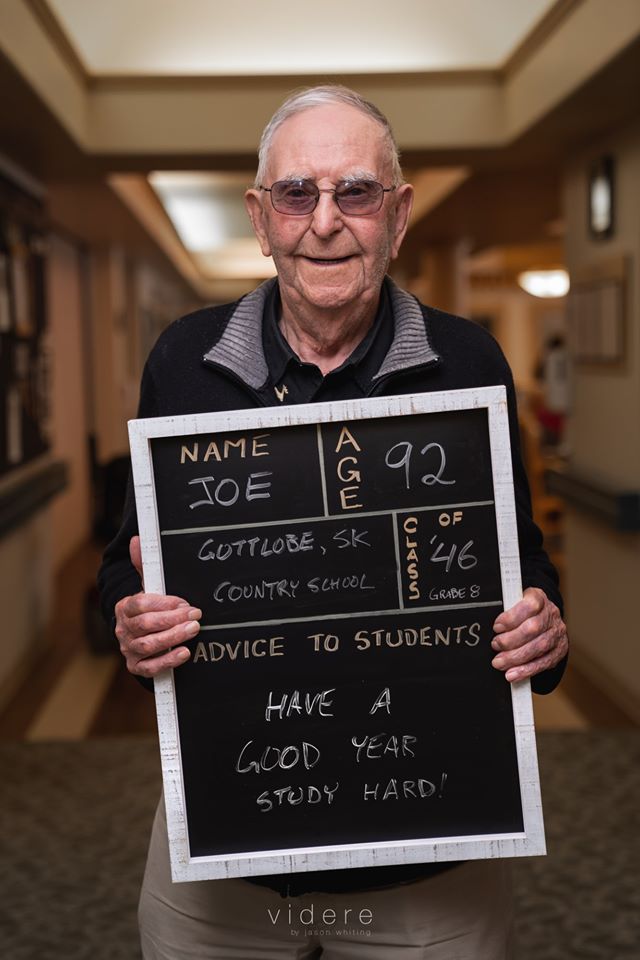 NAME
JOE
AGE
92
GOTTLOBE, SK
COUNTRY SCHOOL
CLASS
OF
'46
GRADE 8
ADVICE TO STUDENTS
HAVE A
GOOD YEAR
STUDY HARD!
videre
by jason whiting